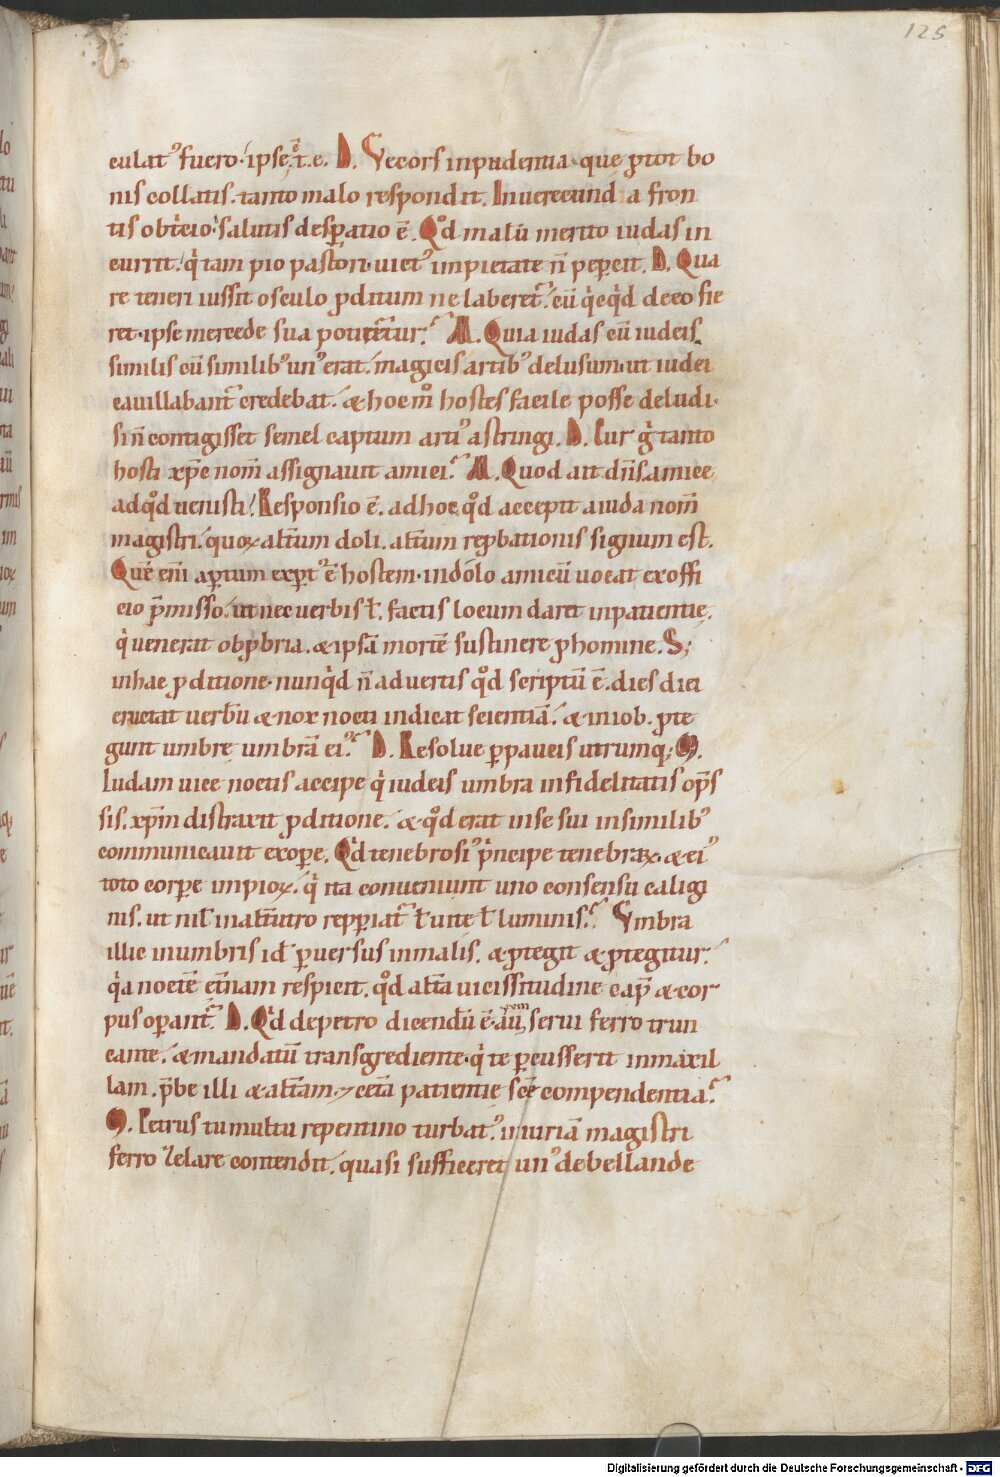 125
culat᾿ fuero· ipse. ē. t. e. D. Vecors inpudentia que ꝓtot bo
nis collatis. tanto malo respondit. Inuerecund a fron
tis obteio· salutis desꝑatio ē. Qd̊ malū merito iudas in
currit. qi tam pio pastori uict᾿ impietate n̄ peꝑcit. D. Qua
re teneri iussit osculo ꝓditum ne laberet᷑. cū qi eqid de eo fie
ret· ipse mercede sua potiret᷑ur? M. Quia iudas cū iudeis
similis cū similib᾿ un᾿ erat. magicis artib᾿ delusum· ut iudei
cauillabant᷑ credebat. & hoc m̊ hostes facile posse deludi·
si n̄ contigisset semel captum arti᾿ astringi. D. Cur g̊ tanto
hosti xp̄c nom̄ assignauit amici? M. Quod ait dn̄s. amice
ad qd̊ uenisti? Responsio ē. ad hoc qd̊ accepit a iuda nom̄
magistri. quoꝝ alt̄um doli. alt̄um reꝓbationis signum est.
Quē eni aꝑtum exꝑt᾿ ē hostem· indōlo amicū uocat ex offi
cio p̄misso. ut nec uerbis ł. factis locum daret inpatientie.
qi uenerat obꝓbria. & ipsā mortē sustinere ꝓ homine. S;
in hac ꝓditione· nunqid n̄ aduertis qd̊ scriptū ē. dies diei
eructat uerbū & nox nocti indicat scientiā. & in iob. ꝓte
gunt umbre umbrā ei᾿? D. Resolue ꝑ paucis utrumq; M.
Iudam uice noctis accipe qi iudeis umbra infidelitatis op̄s
sis. xp̄m distraxit ꝓditione. & qd̊ erat in se sui in similib᾿
communicauit exoꝑe. Qid tenebrosi᾿ pincipe tenebraꝝ. & ei᾿
toto corꝑe impioꝝ. qi ita conueniunt uno consensu caligi
nis. ut nil in alt̄utro repꝑiat᷑ ł uite ł luminis? Vmbra
illic in umbris id ꝑuersus in malis. & ꝓtegit & ꝓtegitur.
qia noctē et̄nam respicit. qd̊ alt̄a uicissitudine cap̄ & cor
pus oꝑant᷑? D. Qid de petro dicendū ē· aurem serui ferro trun
cante. & mandatū transgrediente· qi te ꝑcusserit in maxil
lam. p̄be illi & alt̄am· ⁊ cet̄a patientie sc̄e compendentia?
M. Petrus tumultu repentino turbat᾿. iniuriā magistri
ferro zelare contendit. quasi sufficeret un᾿ debellande
Digitalisierung gefördert durch die Deutsche Forschungsgemeinschaft - DFG